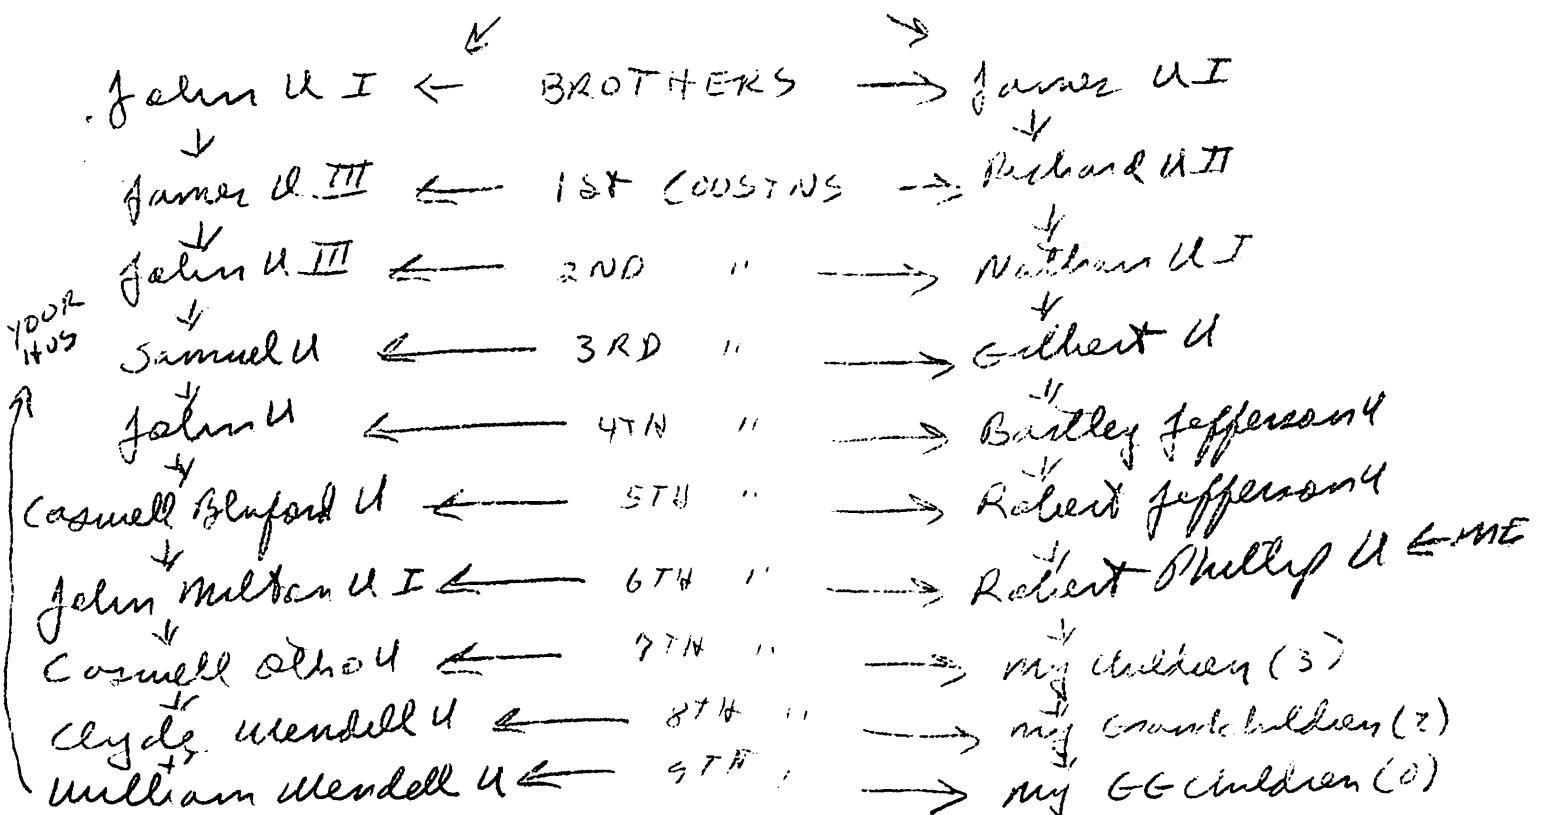 John U I ← BROTHERS → James U I
James U III ← 1ST COUSINS → Richard U II
John U III ← 2ND " → Nathan U I
YOUR HUS
Samuel U ← 3RD " → Gilbert U
John U ← 4TH " → Bartley Jefferson U
Caswell Bluford U ← 5TH " → Robert Jefferson U
John Milton U I ← 6TH " → Robert Phillip U ← ME
Caswell Otho U ← 7TH " → my children (3)
Clyde Wendell U ← 8TH " → my Grandchildren (2)
William Wendell U ← 9TH " → my GG children (0)